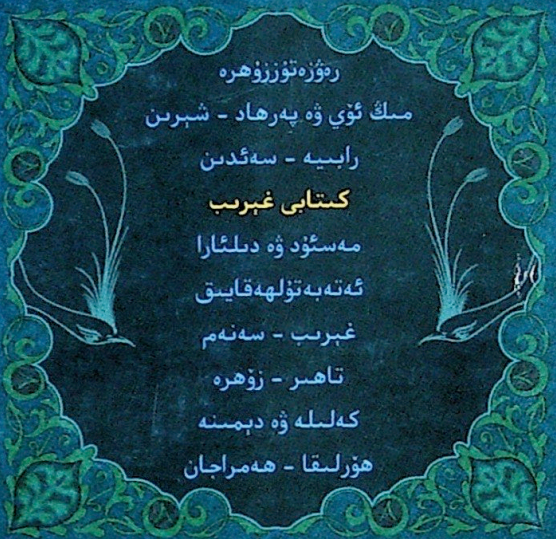 رەۋزەتۇززۇھرە
مىڭ ئۆي ۋە پەرھاد - شېرىن
رابىيە - سەئدىن
كىتابى غېرىب
مەسئۇد ۋە دىلئارا
ئەتەبەتۇلھەقايىق
غېرىب - سەنەم
تاھىر - زۆھرە
كەلىلە ۋە دېمىنە
ھۆرلىقا - ھەمراجان